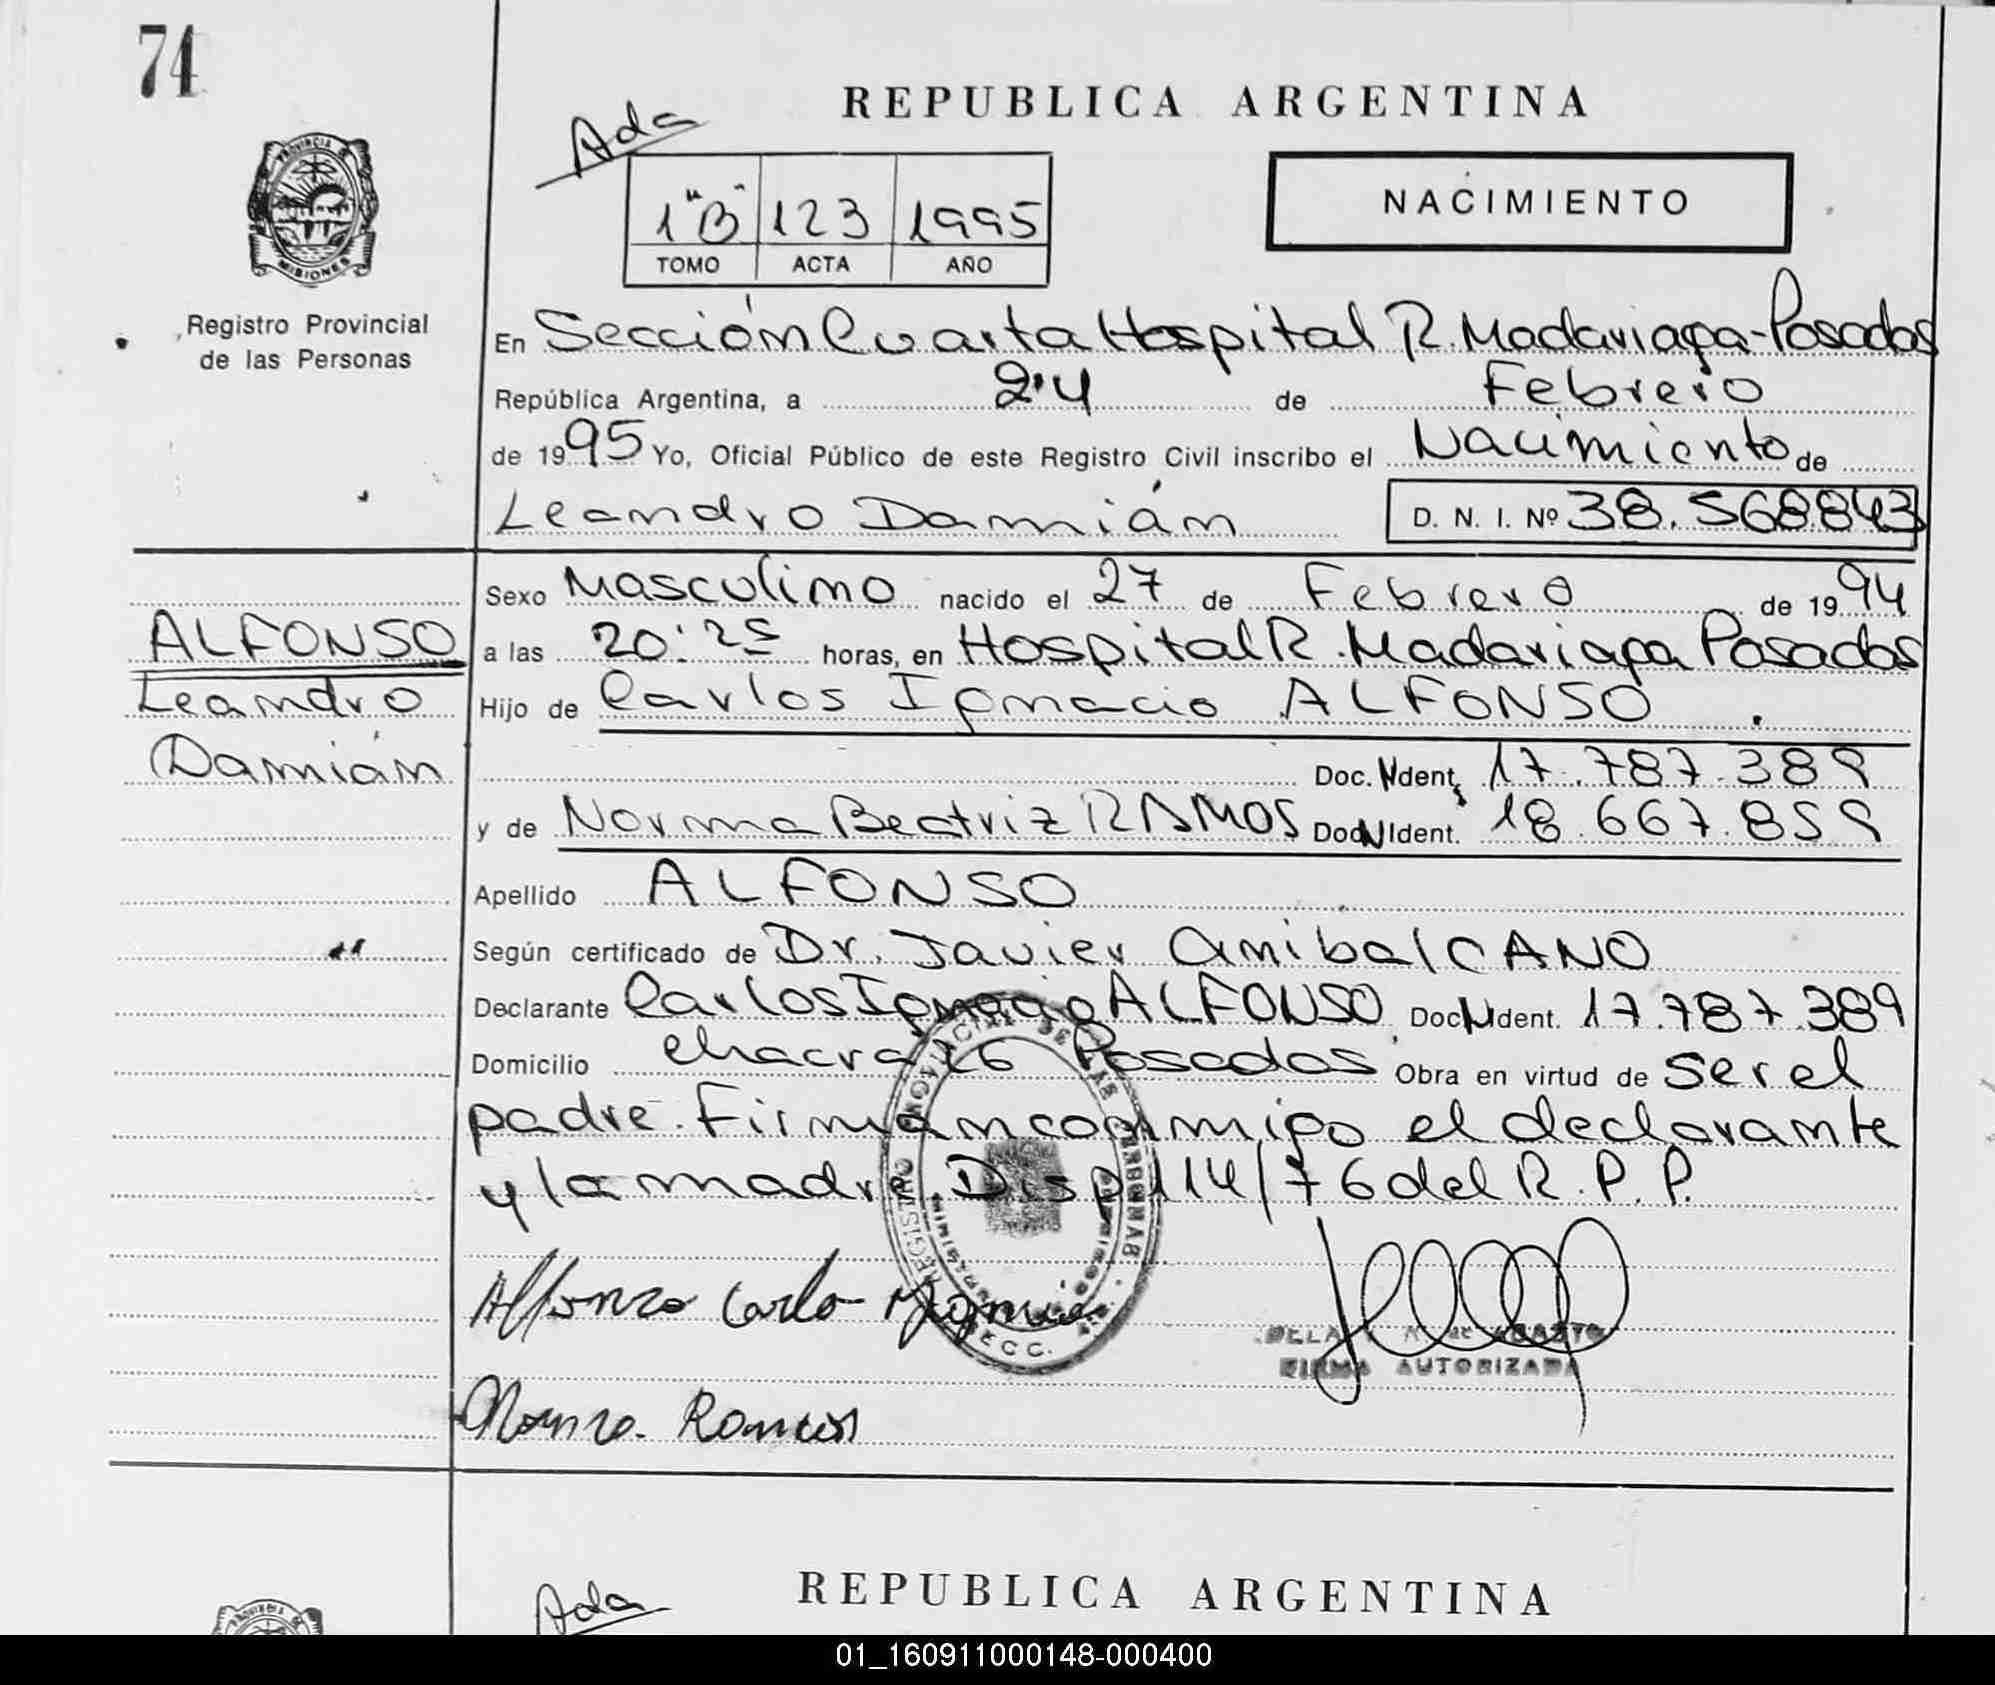 74
REPUBLICA ARGENTINA
Ada
1 "B" 123 1995
TOMO ACTA AÑO
NACIMIENTO
PROVINCIA DE
MISIONES
Registro Provincial
de las Personas
En Sección Cuarta Hospital R. Madariaga - Posadas
República Argentina, a 24 de Febrero
de 1995 Yo, Oficial Público de este Registro Civil inscribo el Nacimiento de
Leandro Damián D. N. I. Nº 38.568.843
Sexo Masculino nacido el 27 de Febrero de 1994
ALFONSO
Leandro
Damián
a las 20:25 horas, en Hospital R. Madariaga Posadas
Hijo de Carlos Ignacio ALFONSO
Doc. Ident. 17.787.389
y de Norma Beatriz RAMOS Doc. Ident. 18.667.859
Apellido ALFONSO
Según certificado de Dr. Javier Anibal CANO
Declarante Carlos Ignacio ALFONSO Doc. Ident. 17.787.389
Domicilio chacra 26 Posadas Obra en virtud de ser el
padre. Firman conmigo el declarante
y la madre Disp 114/76 del R. P. P.
REGISTRO PROVINCIAL DE LAS PERSONAS
Alfonzo Carlo Ignacio
FIRMA AUTORIZADA
Ramos
REPUBLICA ARGENTINA
Ada
01_160911000148-000400